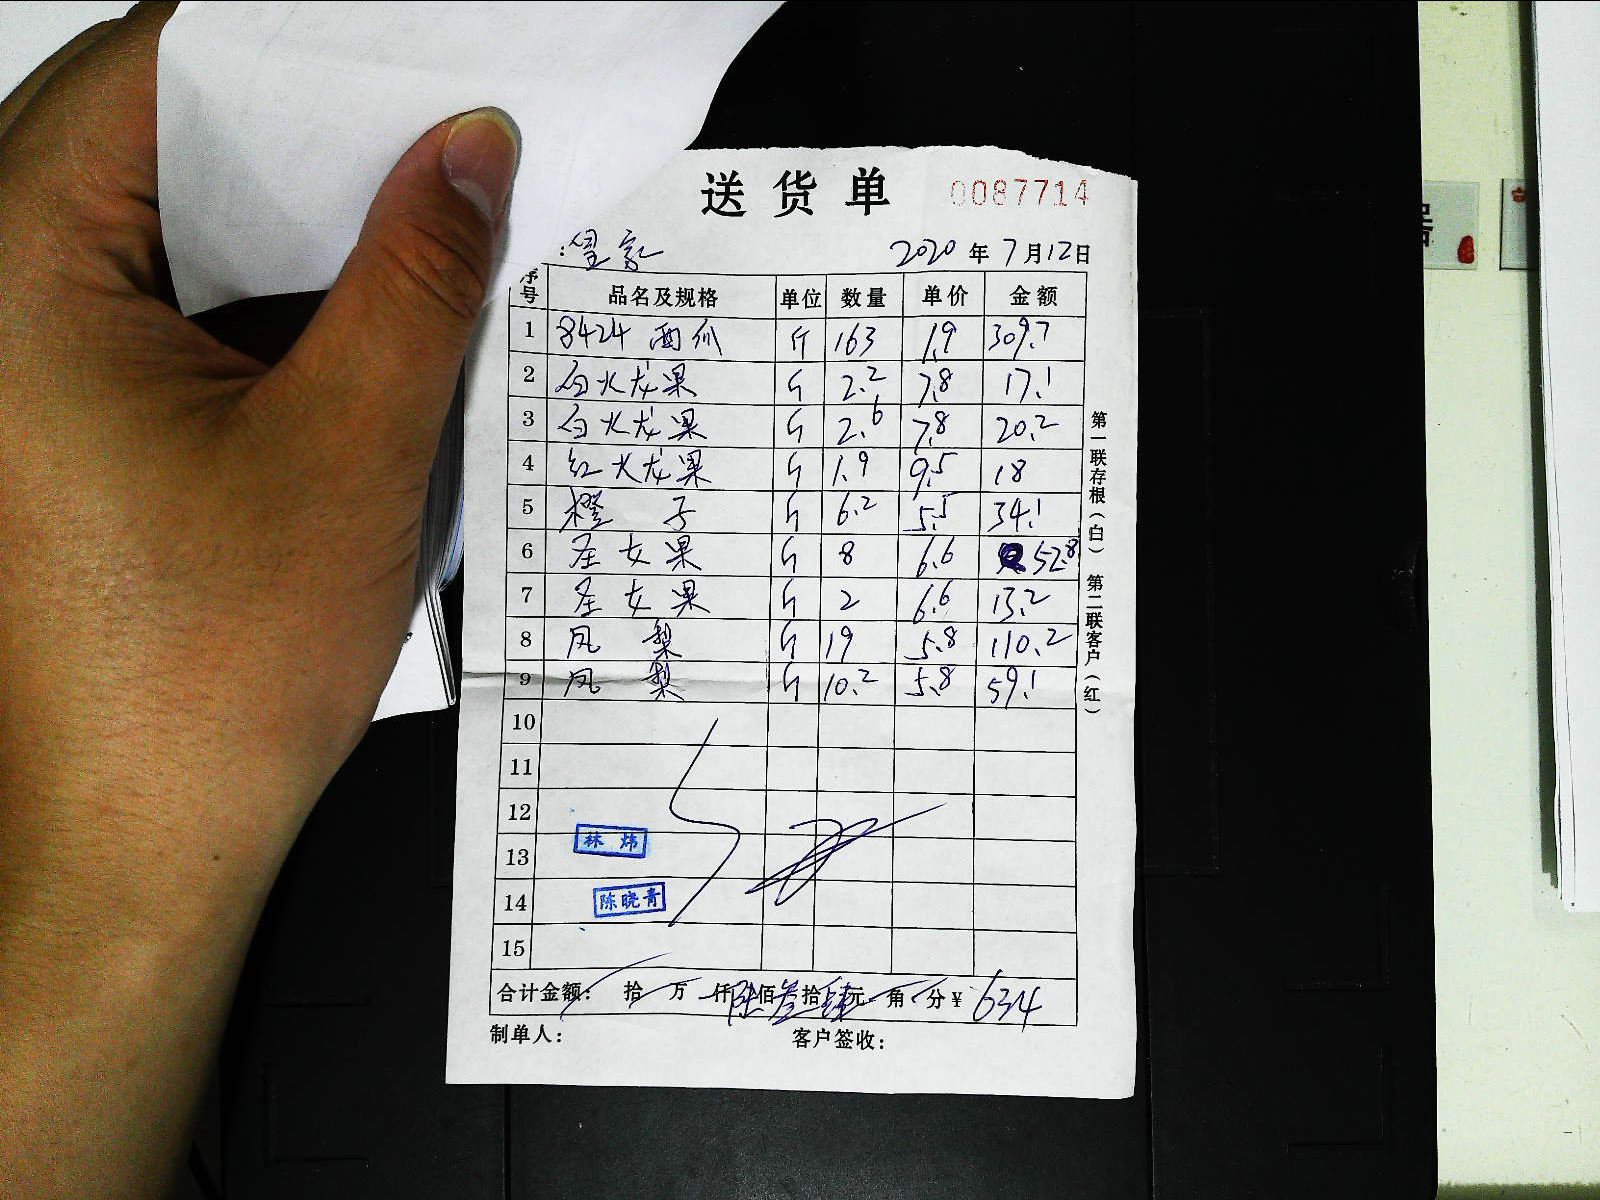 送货单 0087714
:皇家 2020年7月12日
序号 品名及规格 单位 数量 单价 金额
1 8424 西瓜 斤 163 1.9 309.7
2 白火龙果 斤 2.2 7.8 17.1
3 白火龙果 斤 2.6 7.8 20.2
4 红火龙果 斤 1.9 9.5 18
5 橙子 斤 6.2 5.5 34.1
6 圣女果 斤 8 6.6 52.8
7 圣女果 斤 2 6.6 13.2
8 凤梨 斤 19 5.8 110.2
9 凤梨 斤 10.2 5.8 59.1
10
11
12
13 林炜
14 陈晓青
15
合计金额: 拾 万 仟 陆佰叁拾肆元 角 分¥ 634
制单人: 客户签收:
第一联存根(白) 第二联客户(红)